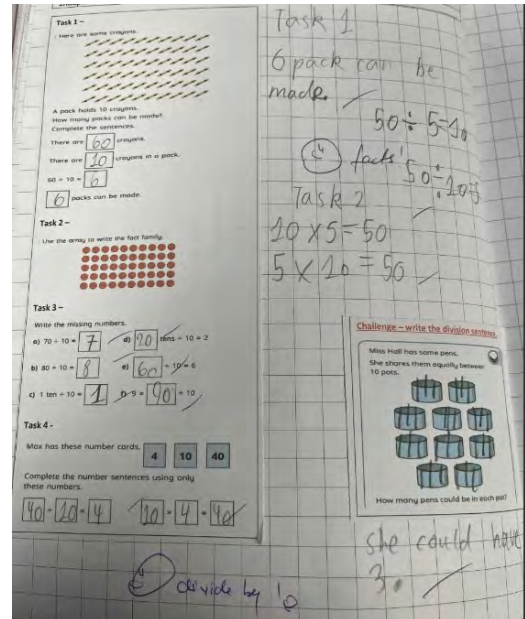 Task 1 –
Here are some crayons.
A pack holds 10 crayons.
How many packs can be made?
Complete the sentences.
There are 60 crayons.
There are 10 crayons in a pack.
60 ÷ 10 = 6
6 packs can be made.
Task 2 –
Use the array to write the fact family.
Task 3 –
Write the missing numbers.
a) 70 ÷ 10 = 7
d) 20 tens ÷ 10 = 2
b) 80 ÷ 10 = 8
e) 60 ÷ 10 = 6
c) 1 ten ÷ 10 = 1
f) 9 = 90 ÷ 10
Task 4 -
Max has these number cards.
4 10 40
Complete the number sentences using only
these numbers.
40 ÷ 10 = 4
10 × 4 = 40
Task 1
6 pack can be
made.
50 ÷ 5 = 10
facts
50 ÷ 10 = 5
Task 2
10 X 5 = 50
5 X 10 = 50
Challenge – write the division sentence.
Miss Hall has some pens.
She shares them equally between
10 pots.
How many pens could be in each pot?
she could have
3.
divide by 10